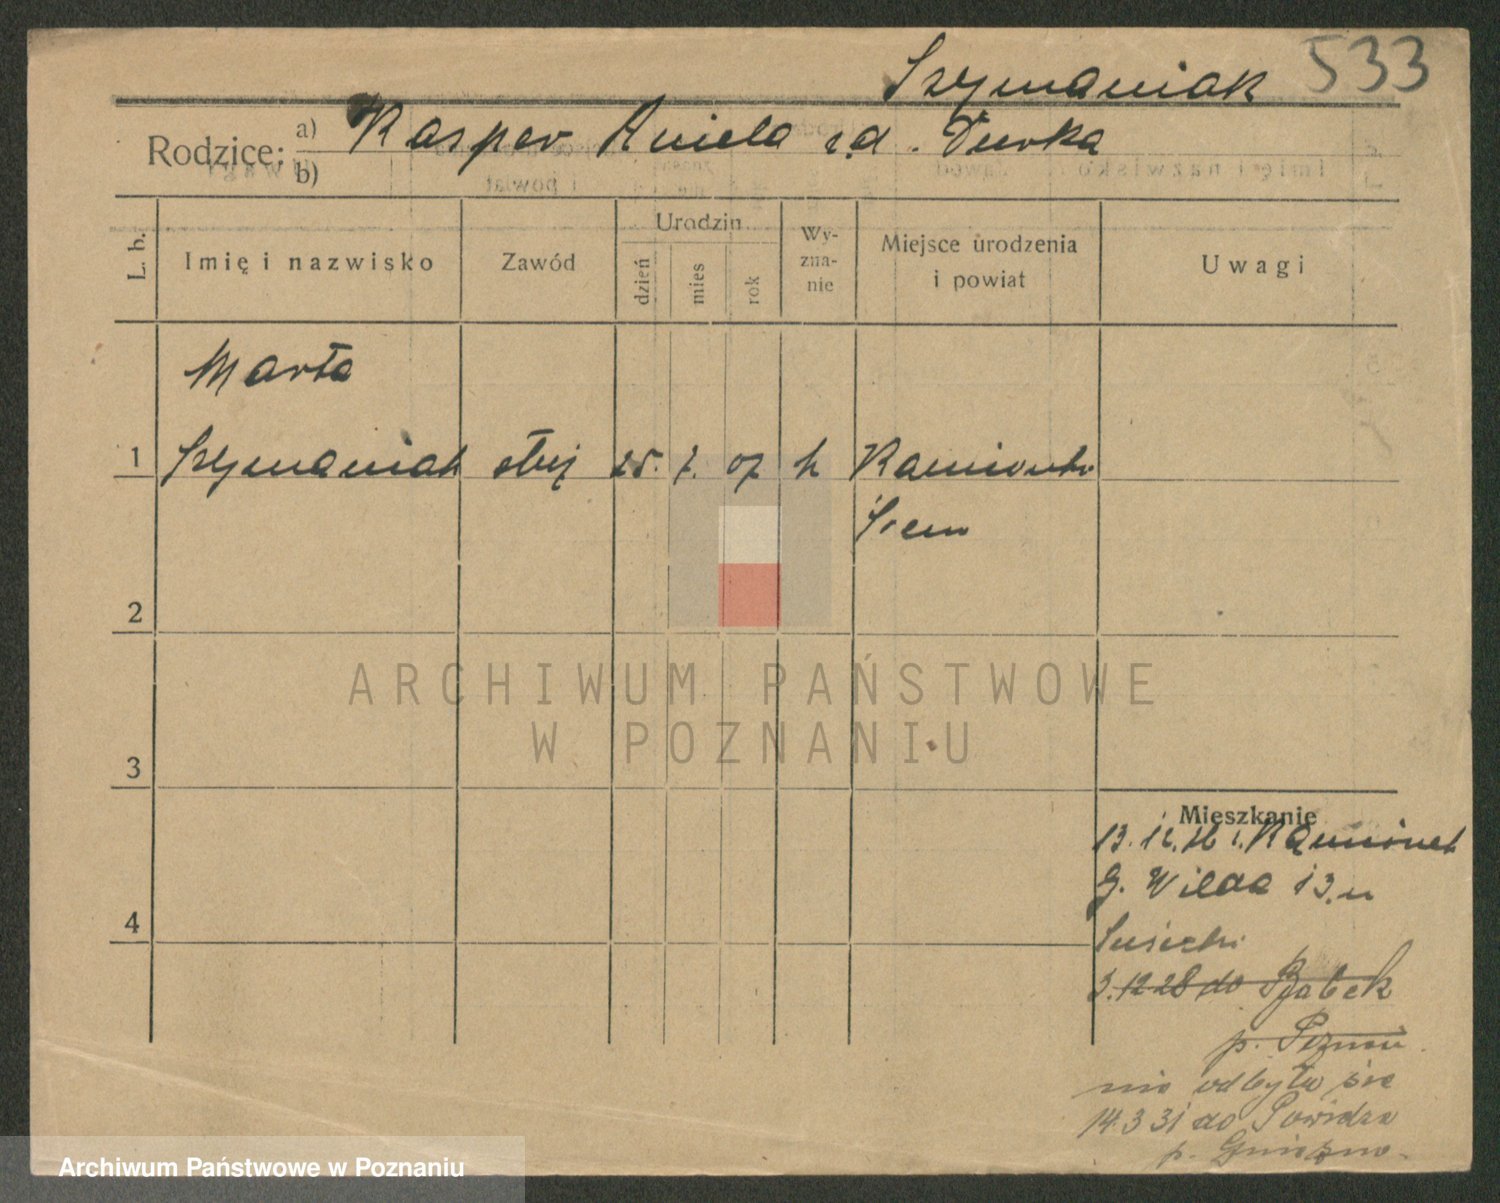 Szymaniak 533
Rodzice: a) Kasper Aniela z d. Turka
b)
L. b.
Imię i nazwisko
Zawód
Urodzin
dzień
mies
rok
Wy-
zna-
nie
Miejsce urodzenia
i powiat
Uwagi
Marta
1 Szymaniak służ 25. 7. 07 k Kamionki
Śrem
2
3
4
Mieszkanie
13.12. z Kamionek
G. Wilda 13.
3.12 28 do
p. Poznań
nie odbyła się
14.3 31 do Powidza
p. Gniezno.
ARCHIWUM PAŃSTWOWE
W POZNANIU
Archiwum Państwowe w Poznaniu